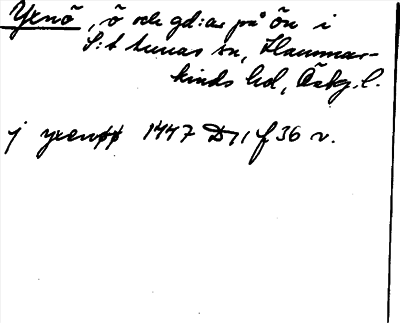 Yxnö, ö och gd:ar på ön i
S:t Annas sn, Hammar-
kinds hd, Östg. l.
j yxenøø 1447 D 11 f 36 v.